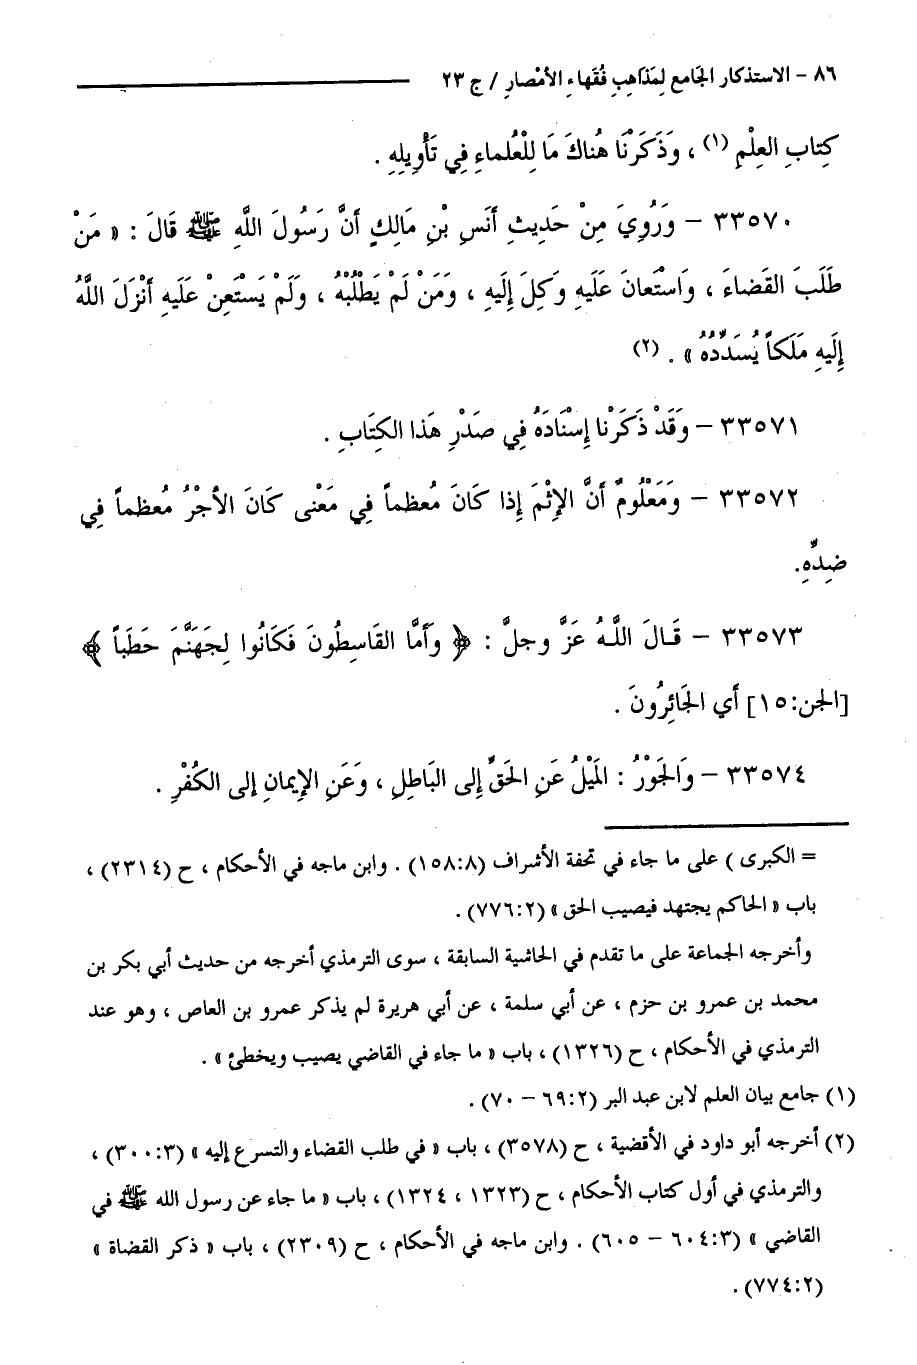 ٨٦ – الاستذكار الجَامع لِمَذاهِبِ فُقَهاءِ الأمْصارِ / ج ٢٣
كِتابِ العِلْمِ (١) ، وَذَكَرْنَا هُناكَ مَا لِلْعُلماءِ فِي تَأْوِيلِهِ .
٣٣٥٧٠ – وَرُوِيَ مِنْ حَدِيثِ أنَسِ بْنِ مَالِكٍ أنَّ رَسُولَ اللَّهِ ﷺ قَالَ : « مَنْ
طَلَبَ القَضاءَ ، وَاسْتَعانَ عَلَيهِ وَكِلَ إِلَيهِ ، وَمَنْ لَمْ يَطْلُبْهُ ، وَلَمْ يَسْتَعِنْ عَلَيهِ أنْزَلَ اللَّهُ
إِلَيهِ مَلَكاً يُسَدِّدُهُ » . (٢)
٣٣٥٧١ – وَقَدْ ذَكَرْنا إِسْنَادَهُ فِي صَدْرِ هَذا الكِتَابِ .
٣٣٥٧٢ – وَمَعْلُومٌ أنَّ الإِثْمَ إِذا كَانَ مُعظماً فِي مَعْنى كَانَ الأجْرُ مُعظماً فِي
ضِدِّهِ.
٣٣٥٧٣ – قَالَ اللَّهُ عَزَّ وجلَّ : ﴿ وَأَمَّا القَاسِطُونَ فَكَانُوا لِجَهَنَّمَ حَطَباً ﴾
[الجن:١٥] أي الجَائِرُونَ .
٣٣٥٧٤ – وَالجَوْرُ : المَيْلُ عَنِ الحَقِّ إِلى البَاطِلِ ، وَعَنِ الإِيمانِ إِلى الكُفْرِ .
= الكبرى ) على ما جاء في تحفة الأشراف (١٥٨:٨) . وابن ماجه في الأحكام ، ح (٢٣١٤) ،
باب « الحاكم يجتهد فيصيب الحق » (٧٧٦:٢).
وأخرجه الجماعة على ما تقدم في الحاشية السابقة ، سوى الترمذي أخرجه من حديث أبي بكر بن
محمد بن عمرو بن حزم ، عن أبي سلمة ، عن أبي هريرة لم يذكر عمرو بن العاص ، وهو عند
الترمذي في الأحكام ، ح (١٣٢٦) ، باب « ما جاء في القاضي يصيب ويخطئ » .
(١) جامع بيان العلم لابن عبد البر (٦٩:٢ – ٧٠) .
(٢) أخرجه أبو داود في الأقضية ، ح (٣٥٧٨) ، باب « في طلب القضاء والتسرع إليه » (٣٠٠:٣) ،
والترمذي في أول كتاب الأحكام ، ح (١٣٢٣ ، ١٣٢٤) ، باب « ما جاء عن رسول الله ﷺ في
القاضي » (٦٠٤:٣ – ٦٠٥) . وابن ماجه في الأحكام ، ح (٢٣٠٩) ، باب « ذكر القضاة »
(٧٧٤:٢) .